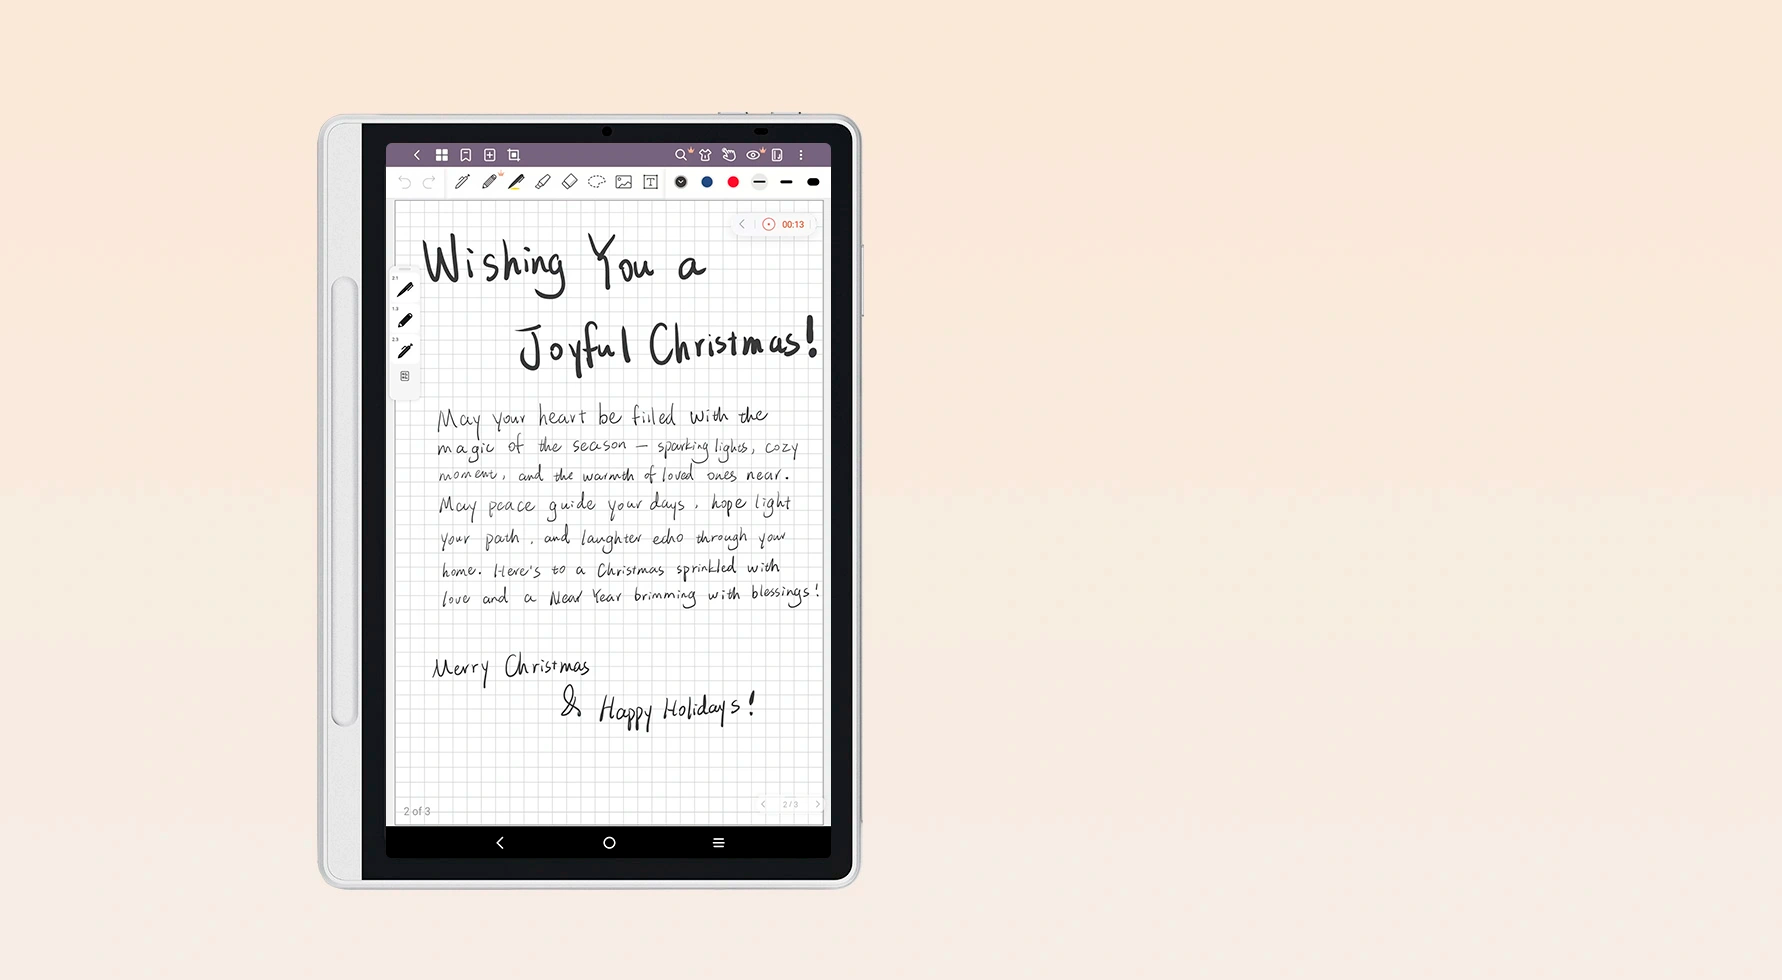 00:13
Wishing You a
Joyful Christmas!
2.1
1.3
2.3
May your heart be filled with the
magic of the season — sparking lights, cozy
moment, and the warmth of loved ones near.
May peace guide your days, hope light
your path, and laughter echo through your
home. Here's to a Christmas sprinkled with
love and a New Year brimming with blessings!
Merry Christmas
& Happy Holidays!
2 of 3
2/3